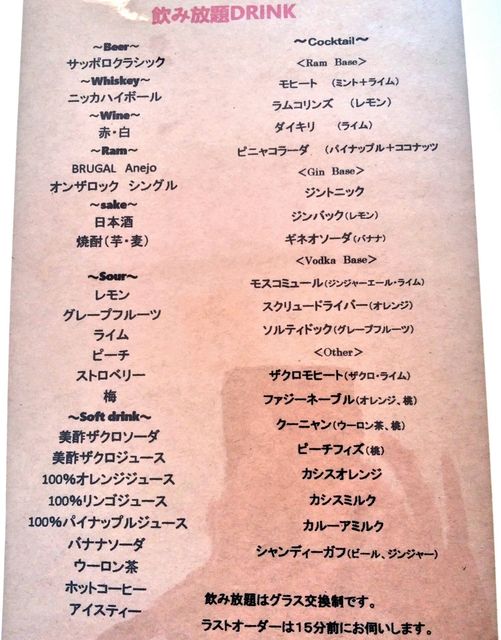 飲み放題DRINK
～Beer～
サッポロクラシック
～Whiskey～
ニッカハイボール
～Wine～
赤・白
～Ram～
BRUGAL Anejo
オンザロック シングル
～sake～
日本酒
焼酎（芋・麦）
～Sour～
レモン
グレープフルーツ
ライム
ピーチ
ストロベリー
梅
～Soft drink～
美酢ザクロソーダ
美酢ザクロジュース
100%オレンジジュース
100%リンゴジュース
100%パイナップルジュース
バナナソーダ
ウーロン茶
ホットコーヒー
アイスティー
～Cocktail～
＜Ram Base＞
モヒート （ミント＋ライム）
ラムコリンズ （レモン）
ダイキリ （ライム）
ピニャコラーダ （パイナップル＋ココナッツ
＜Gin Base＞
ジントニック
ジンバック（レモン）
ギネオソーダ（バナナ）
＜Vodka Base＞
モスコミュール（ジンジャーエール・ライム）
スクリュードライバー（オレンジ）
ソルティドック（グレープフルーツ）
＜Other＞
ザクロモヒート（ザクロ・ライム）
ファジーネーブル（オレンジ、桃）
クーニャン（ウーロン茶、桃）
ピーチフィズ（桃）
カシスオレンジ
カシスミルク
カルーアミルク
シャンディーガフ（ビール、ジンジャー）
飲み放題はグラス交換制です。
ラストオーダーは15分前にお伺いします。